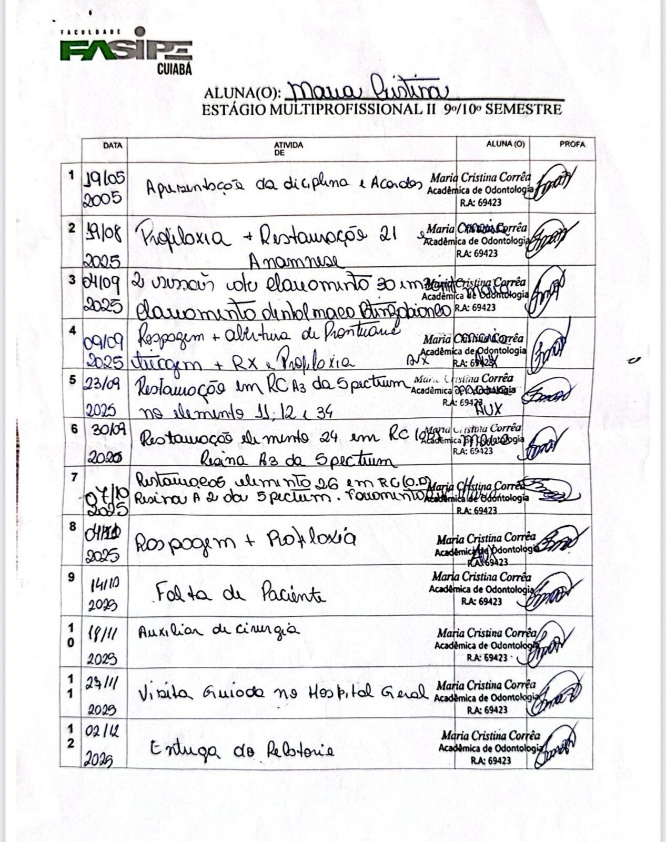 FACULDADE
FASIPE
CUIABÁ
ALUNA(O): Maria Cristina
ESTÁGIO MULTIPROFISSIONAL II 9º/10º SEMESTRE
DATA ATIVIDA DE ALUNA (O) PROFA
1 19/05 2005 Apresentação da diciplina e Acordos Maria Cristina Corrêa Acadêmica de Odontologia R.A: 69423
2 19/08 2025 Profiloxia + Restauração 21 e Anamnese Maria Cristina Corrêa Acadêmica de Odontologia R.A: 69423
3 04/09 2025 2 sessais clareamento 30 min Maria Cristina Corrêa Acadêmica de Odontologia R.A: 69423
clareamento dental
4 09/09 2025 Raspagem + abertura de Prontuario Maria Cristina Corrêa Acadêmica de Odontologia R.A: 69423
triagem + RX e Profiloxia AUX
5 23/09 2025 Restauração em RC A3 da Spectrum Maria Cristina Corrêa Acadêmica de Odontologia R.A: 69423
no elemento 11, 12 e 34 AUX
6 30/09 2025 Restauração elemento 24 em RC Maria Cristina Corrêa Acadêmica de Odontologia R.A: 69423
Resina A3 da Spectrum
7 07/10 2025 Restauraçãos elemento 26 em RC (O.D) Maria Cristina Corrêa Acadêmica de Odontologia R.A: 69423
Resina A2 da Spectum.
8 2025 Raspagem + Profiloxia Maria Cristina Corrêa Acadêmica de Odontologia R.A: 69423
9 14/10 2025 Falta de Paciente Maria Cristina Corrêa Acadêmica de Odontologia R.A: 69423
10 18/11 2025 Auxiliar de cirurgia Maria Cristina Corrêa Acadêmica de Odontologia R.A: 69423
11 27/11 2025 Visita Guiada no Hospital Geral Maria Cristina Corrêa Acadêmica de Odontologia R.A: 69423
12 02/12 2025 Entrega do Relatorio Maria Cristina Corrêa Acadêmica de Odontologia R.A: 69423